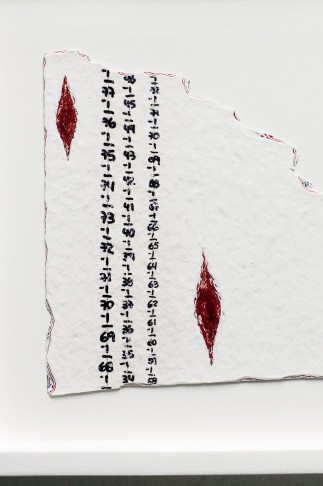 77
76
75
74
73
72
71
70
69
68
45
44
43
42
41
40
39
38
37
36
35
34
71
70
69
68
67
66
65
64
63
62
61
60
59
58